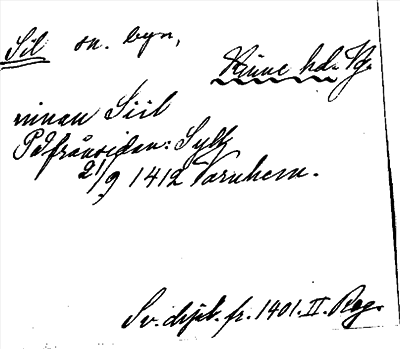 Sil sn. byn,
Kinne hd. Vg.
innan Siil
På frånsidan: Sylz
2/9 1412 Varnhem.
Sv. dipl. fr. 1401. II. Reg.